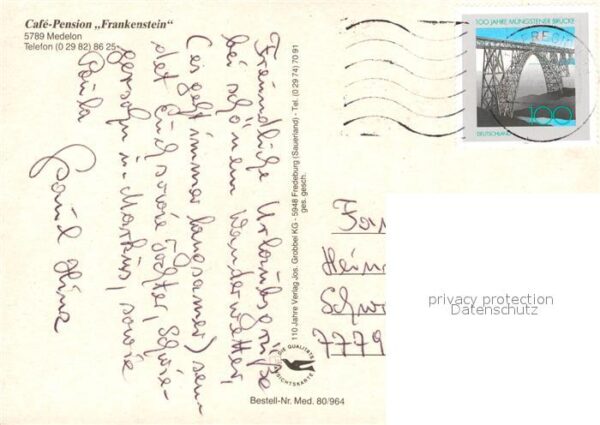 Café-Pension „Frankenstein"
5789 Medelon
Telefon (0 29 82) 86 25
Freundliche Urlaubsgrüße
bei schönem Wanderwetter,
(es geht immer langsamer) sen-
det Euch sowie Tochter, Schwie-
gersohn u. Markus, sowie
Paula
110 Jahre Verlag Jos. Grobbel KG - 5948 Fredeburg (Sauerland) - Tel. (0 29 74) 70 91
ges. gesch.
DIE QUALITÄTS
ANSICHTSKARTE
Bestell-Nr. Med. 80/964
100 JAHRE MÜNGSTENER BRÜCKE
100
DEUTSCHLAND
Fam
Hein
Schw
7779
privacy protection
Datenschutz